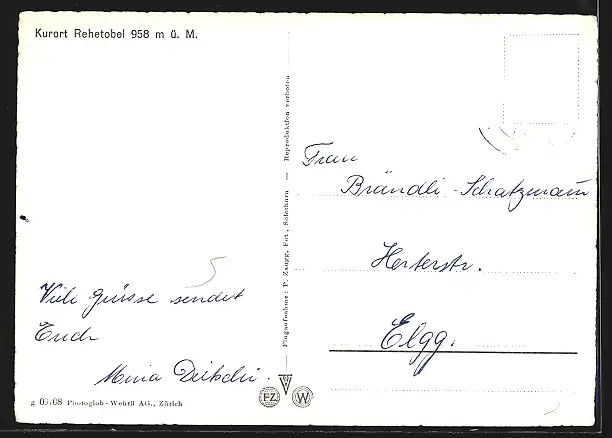 Kurort Rehetobel 958 m ü. M.
Frau
Brändli-Schatzmann
Herterstr.
Elgg.
5
Viele Grüsse sendet
Euch
Mina
Flugaufnahme: P. Zaugg, Fot., Solothurn — Reproduktion verboten
g Photoglob-Wehrli AG., Zürich
PZ W